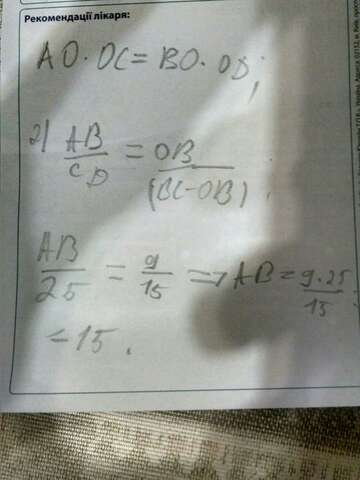 Рекомендації лікаря:
AO · OC = BO · OD;
2) AB/CD = OB/(BC-OB)
AB/25 = 9/15 => AB = 9·25/15 =
= 15.